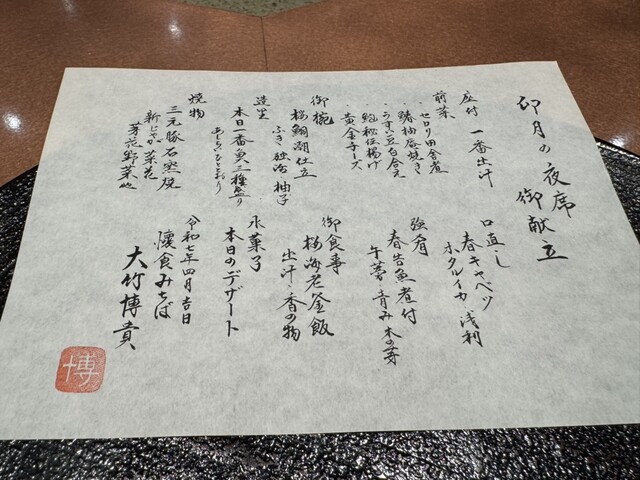 卯月の夜席
御献立
座付 一番出汁
前菜
・セロリ田舎煮
・鰆柚庵焼き
・うすい豆白合え
・鮑秘伝揚げ
・黄金チーズ
御椀
桜鯛潮仕立
ふき 独活 柚子
造里
本日一番魚三種盛り
あしらひとおり
焼物
三元豚石窯焼
新じゃが 菜花
芽花野菜他
口直し
春キャベツ
ホタルイカ 浅利
強肴
春告魚煮付
牛蒡 青み 木の芽
御食事
桜海老釜飯
出汁・香の物
水菓子
本日のデザート
令和七年四月吉日
懐食みちば
大竹博貴
博